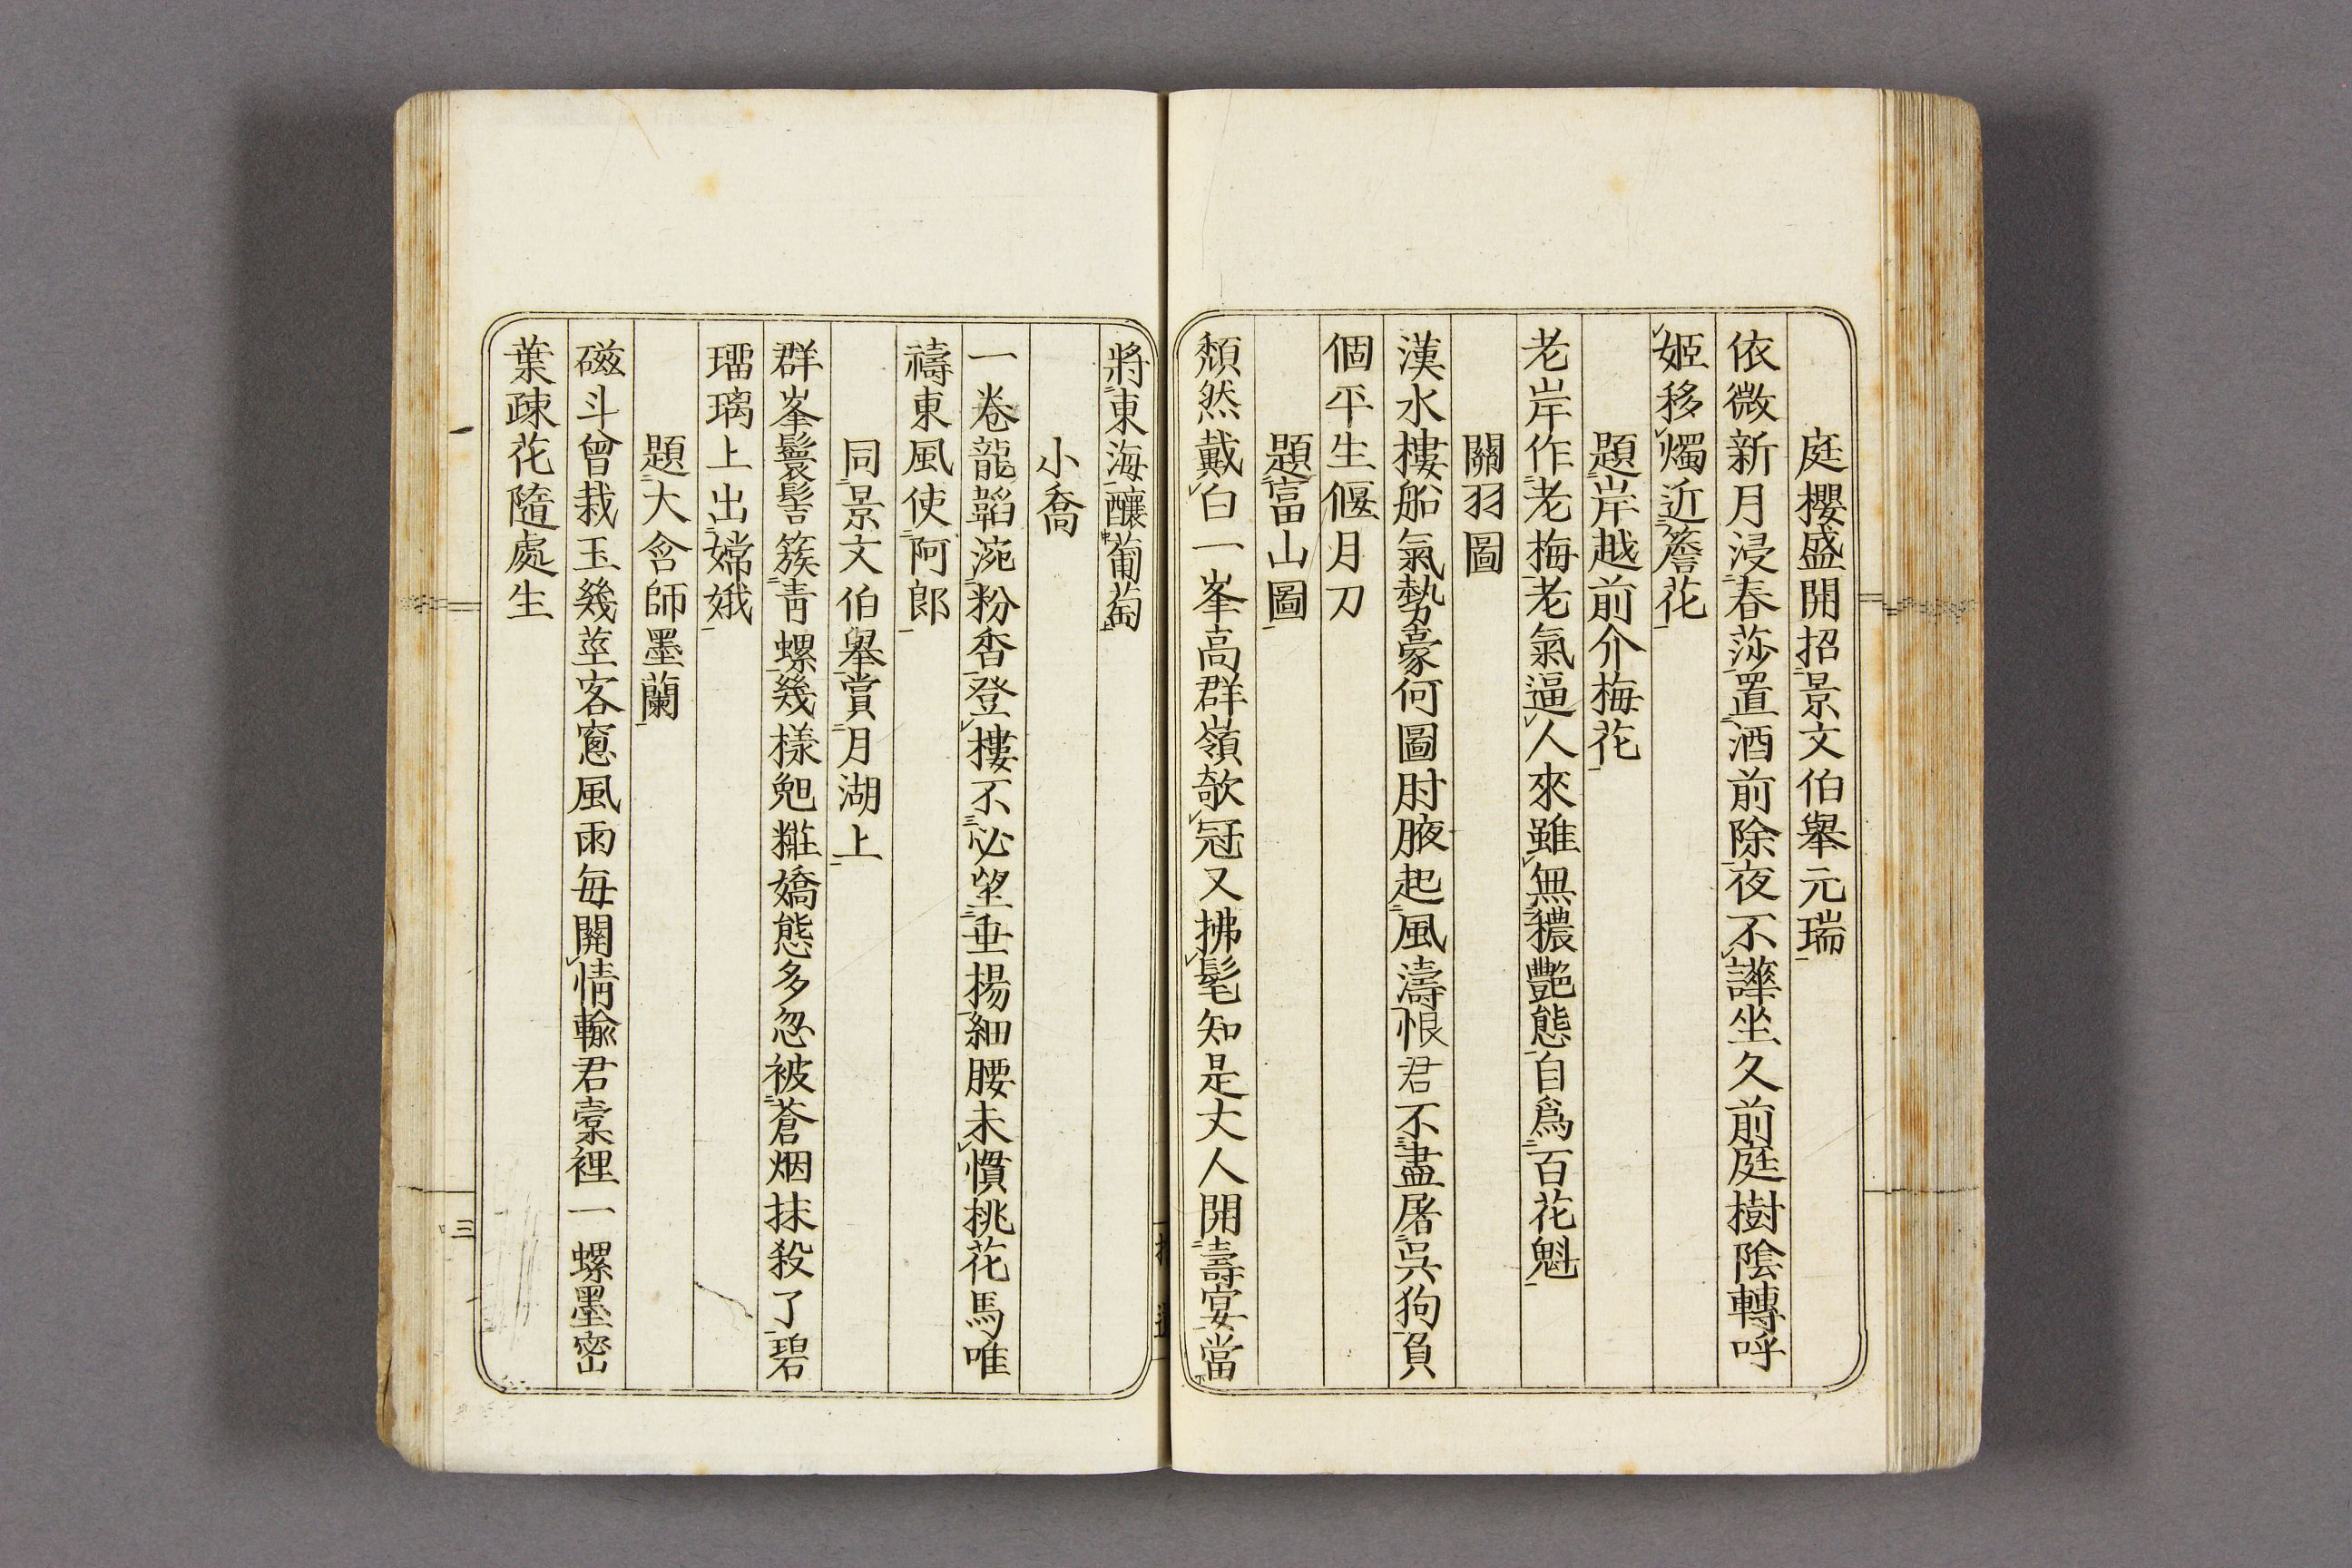 庭櫻盛開招景文伯舉元瑞
依微新月浸春莎置酒前除夜不譁坐久前庭樹陰轉呼
姬移燭近簷花
題岸越前介梅花
老岸作老梅老氣逼人來雖無穠艷態自爲百花魁
關羽圖
漢水樓船氣勢豪何圖肘腋起風濤恨君不盡屠吳狗負
個平生偃月刀
題富山圖
頹然戴白一峯高群嶺欹冠又拂髦知是丈人開壽宴當
將東海釀葡萄
小喬
一卷龍韜涴粉香登樓不必望垂楊細腰未慣挑花馬唯
禱東風使阿郎
同景文伯舉賞月湖上
群峯鬟髻簇青螺幾樣靤糚嬌態多忽被蒼烟抹殺了碧
瑠璃上出嫦娥
題大含師墨蘭
磁斗曾栽玉幾莖客窻風雨每開情輸君橐裡一螺墨密
葉疎花隨處生
三